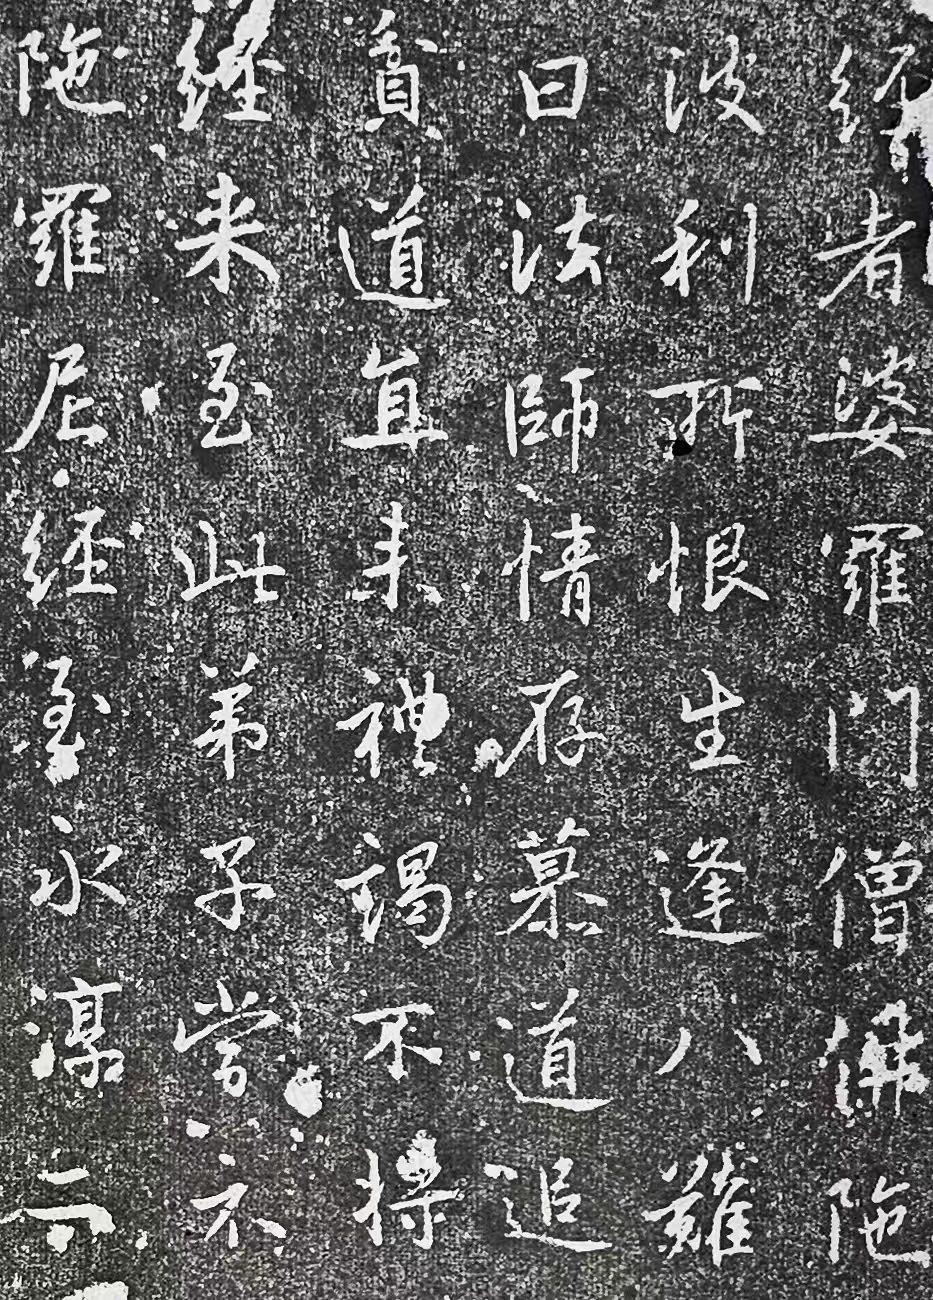 經者婆羅門僧佛陁
波利所恨生逢八難
曰法師情存慕道追
貧道直来禮謁不將
經来至此弟子當不
陁羅尼經至永淳二